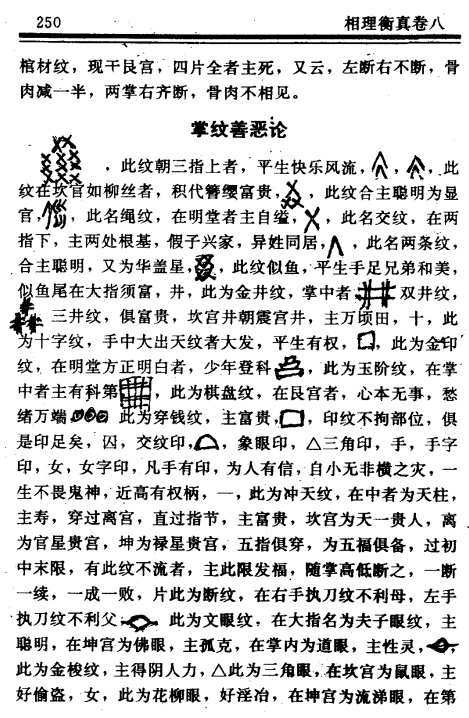 250 相理衡真卷八
棺材纹，现干艮宫，四片全者主死，又云，左断右不断，骨
肉减一半，两掌右齐断，骨肉不相见。
掌纹善恶论
，此纹朝三指上者，平生快乐风流，，，此
纹在坎宫如柳丝者，积代簪缨富贵，，此纹合主聪明为显
官，，此名绳纹，在明堂者主自缢，，此名交纹，在两
指下，主两处根基，假子兴家，异姓同居，，此名两条纹，
合主聪明，又为华盖星，，此纹似鱼，平生手足兄弟和美，
似鱼尾在大指须富，井，此为金井纹，掌中者，双井纹，
，三井纹，俱富贵，坎宫井朝震宫井，主万顷田，十，此
为十字纹，手中大出天纹者大发，平生有权，，此为金印
纹，在明堂方正明白者，少年登科，，此为玉阶纹，在掌
中者主有科第，，此为棋盘纹，在艮宫者，心本无事，愁
绪万端，此为穿钱纹，主富贵，，印纹不拘部位，俱
是印足矣，囚，交纹印，，象眼印，△三角印，手，手字
印，女，女字印，凡手有印，为人有信，自小无非横之灾，一
生不畏鬼神，近高有权柄，一，此为冲天纹，在中者为天柱，
主寿，穿过离宫，直过指节，主富贵，坎宫为天一贵人，离
为官星贵宫，坤为禄星贵宫，五指俱穿，为五福俱备，过初
中末限，有此纹不流者，主此限发福，随掌高低断之，一断
一续，一成一败，片此为断纹，在右手执刀纹不利母，左手
执刀纹不利父，此为文眼纹，在大指名为夫子眼纹，主
聪明，在坤宫为佛眼，主孤克，在掌内为道眼，主性灵，，
此为金梭纹，主得阴人力，△此为三角眼，在坎宫为鼠眼，主
好偷盗，女，此为花柳眼，好淫冶，在坤宫为流涕眼，在第